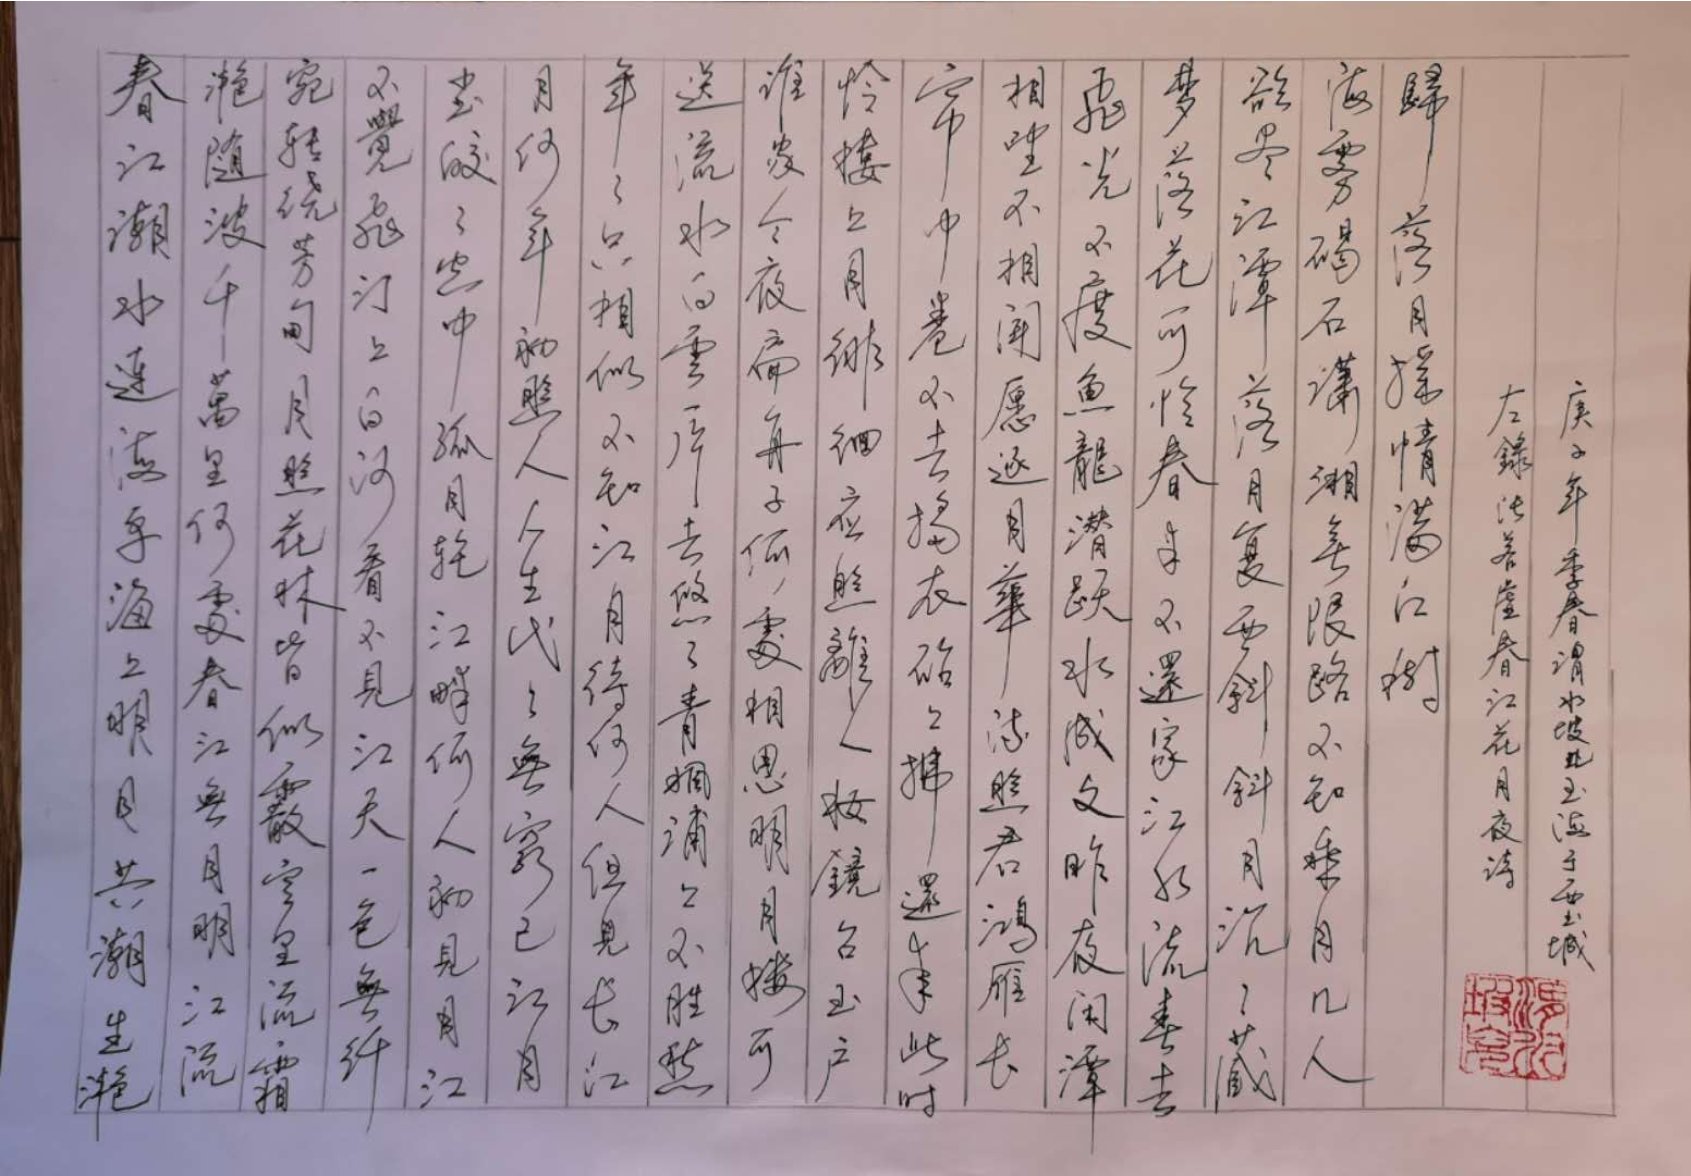 春江潮水連海平海上明月共潮生灩
灩随波千萬里何處春江無月明江流
宛转绕芳甸月照花林皆似霰空里流霜
不覺飛汀上白沙看不見江天一色無纤
尘皎〻空中孤月轮江畔何人初見月江
月何年初照人人生代〻無窮已江月
年〻只相似不知江月待何人但見长江
送流水白雲一片去悠〻青楓浦上不胜愁
谁家今夜扁舟子何處相思明月楼可
怜楼上月徘徊应照離人妆鏡台玉户
帘中卷不去擣衣砧上拂還来此时
相望不相闻愿逐月華流照君鴻雁长
飛光不度魚龍潜跃水成文昨夜闲潭
梦落花可怜春半不還家江水流春去
欲尽江潭落月复西斜斜月沉〻藏
海雾碣石潇湘無限路不知乘月几人
歸落月摇情满江树
左錄张若虚春江花月夜诗
庚子年季春渭水坡北玉海于西玉城